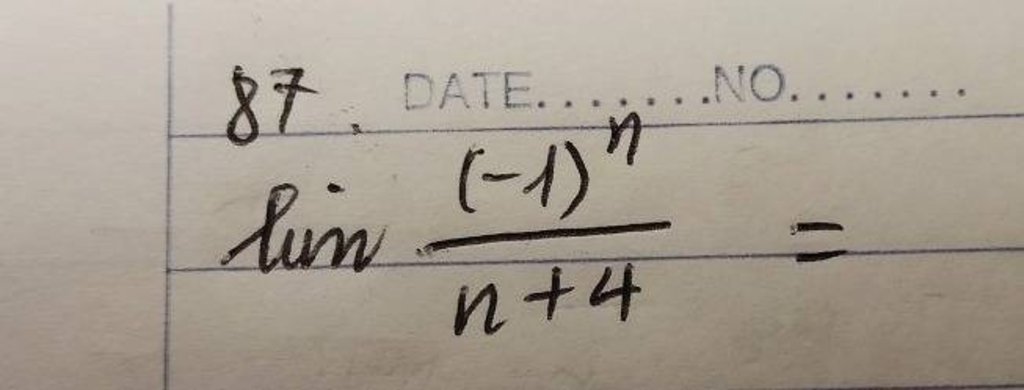 87. DATE.......NO.......
lim (-1)^n / n+4 =